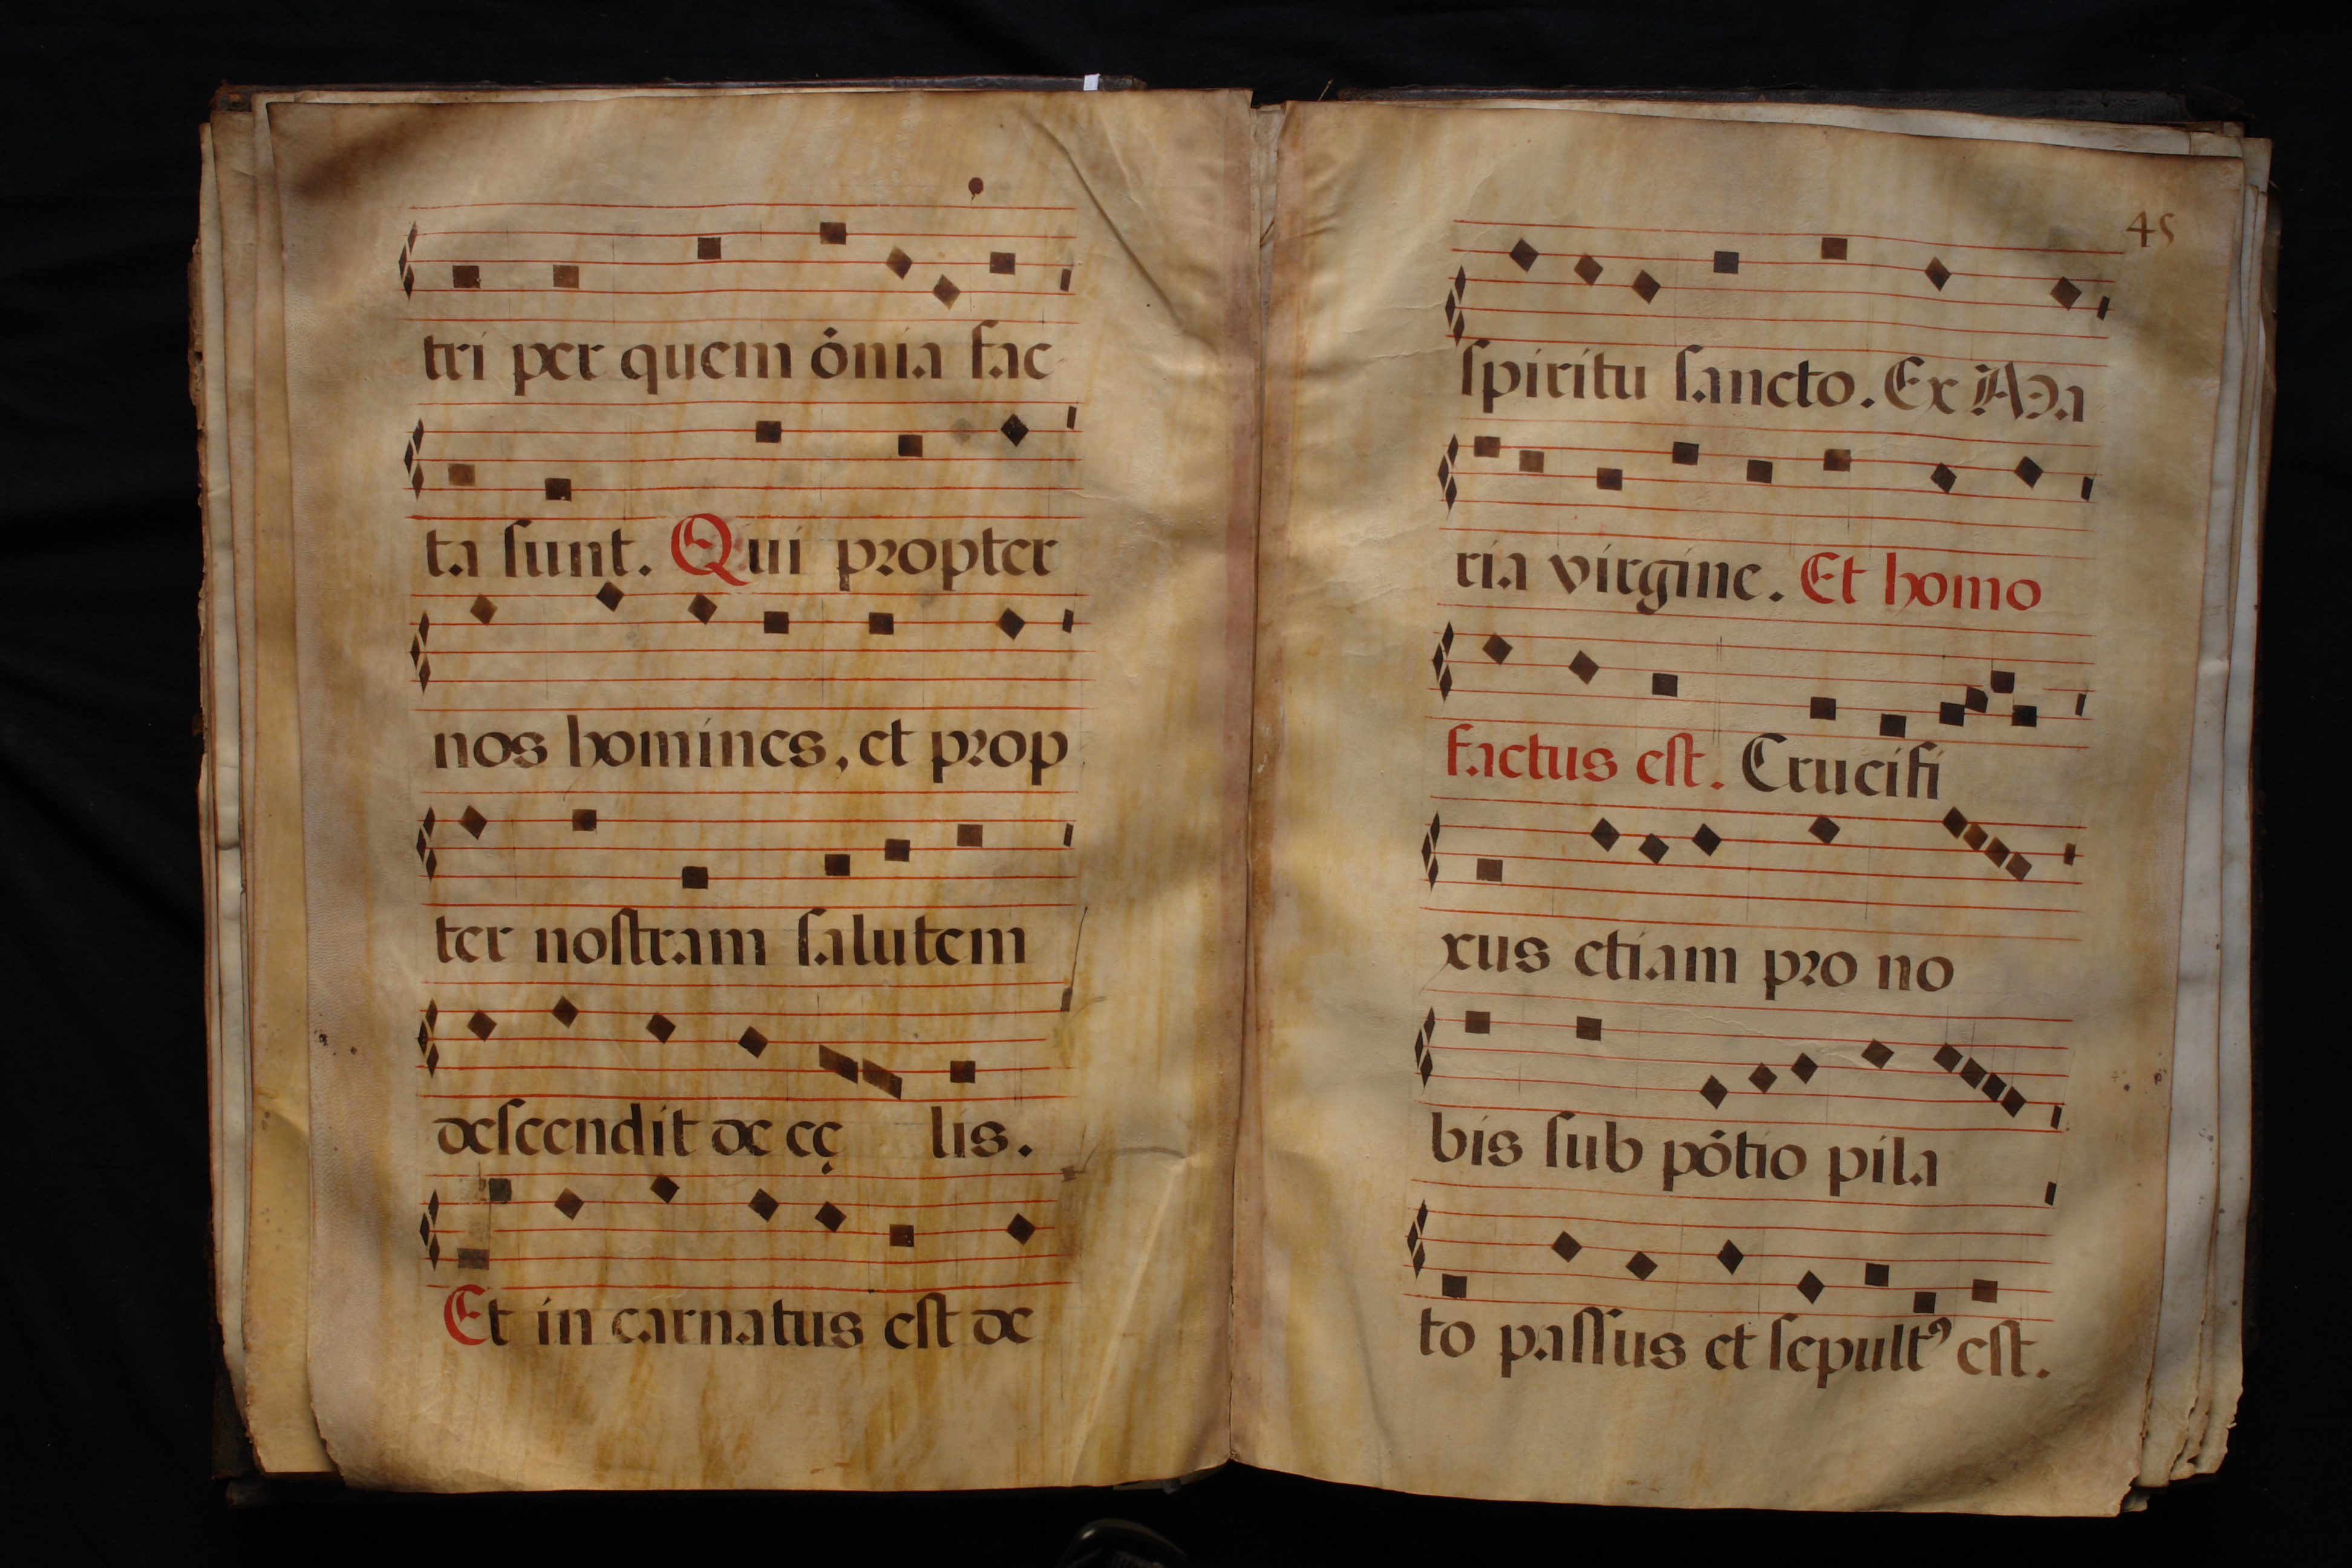 tri per quem ōnia fac
ta ſunt. Qui propter
nos homines, et prop
ter noſtram ſalutem
deſcendit de cę lis.
Et in carnatus eſt de
45
ſpiritu ſancto. Ex Ma
ria virgine. Et homo
factus eſt. Crucifi
xus etiam pro no
bis ſub pōtio pila
to paſſus et ſepultꝰ eſt.